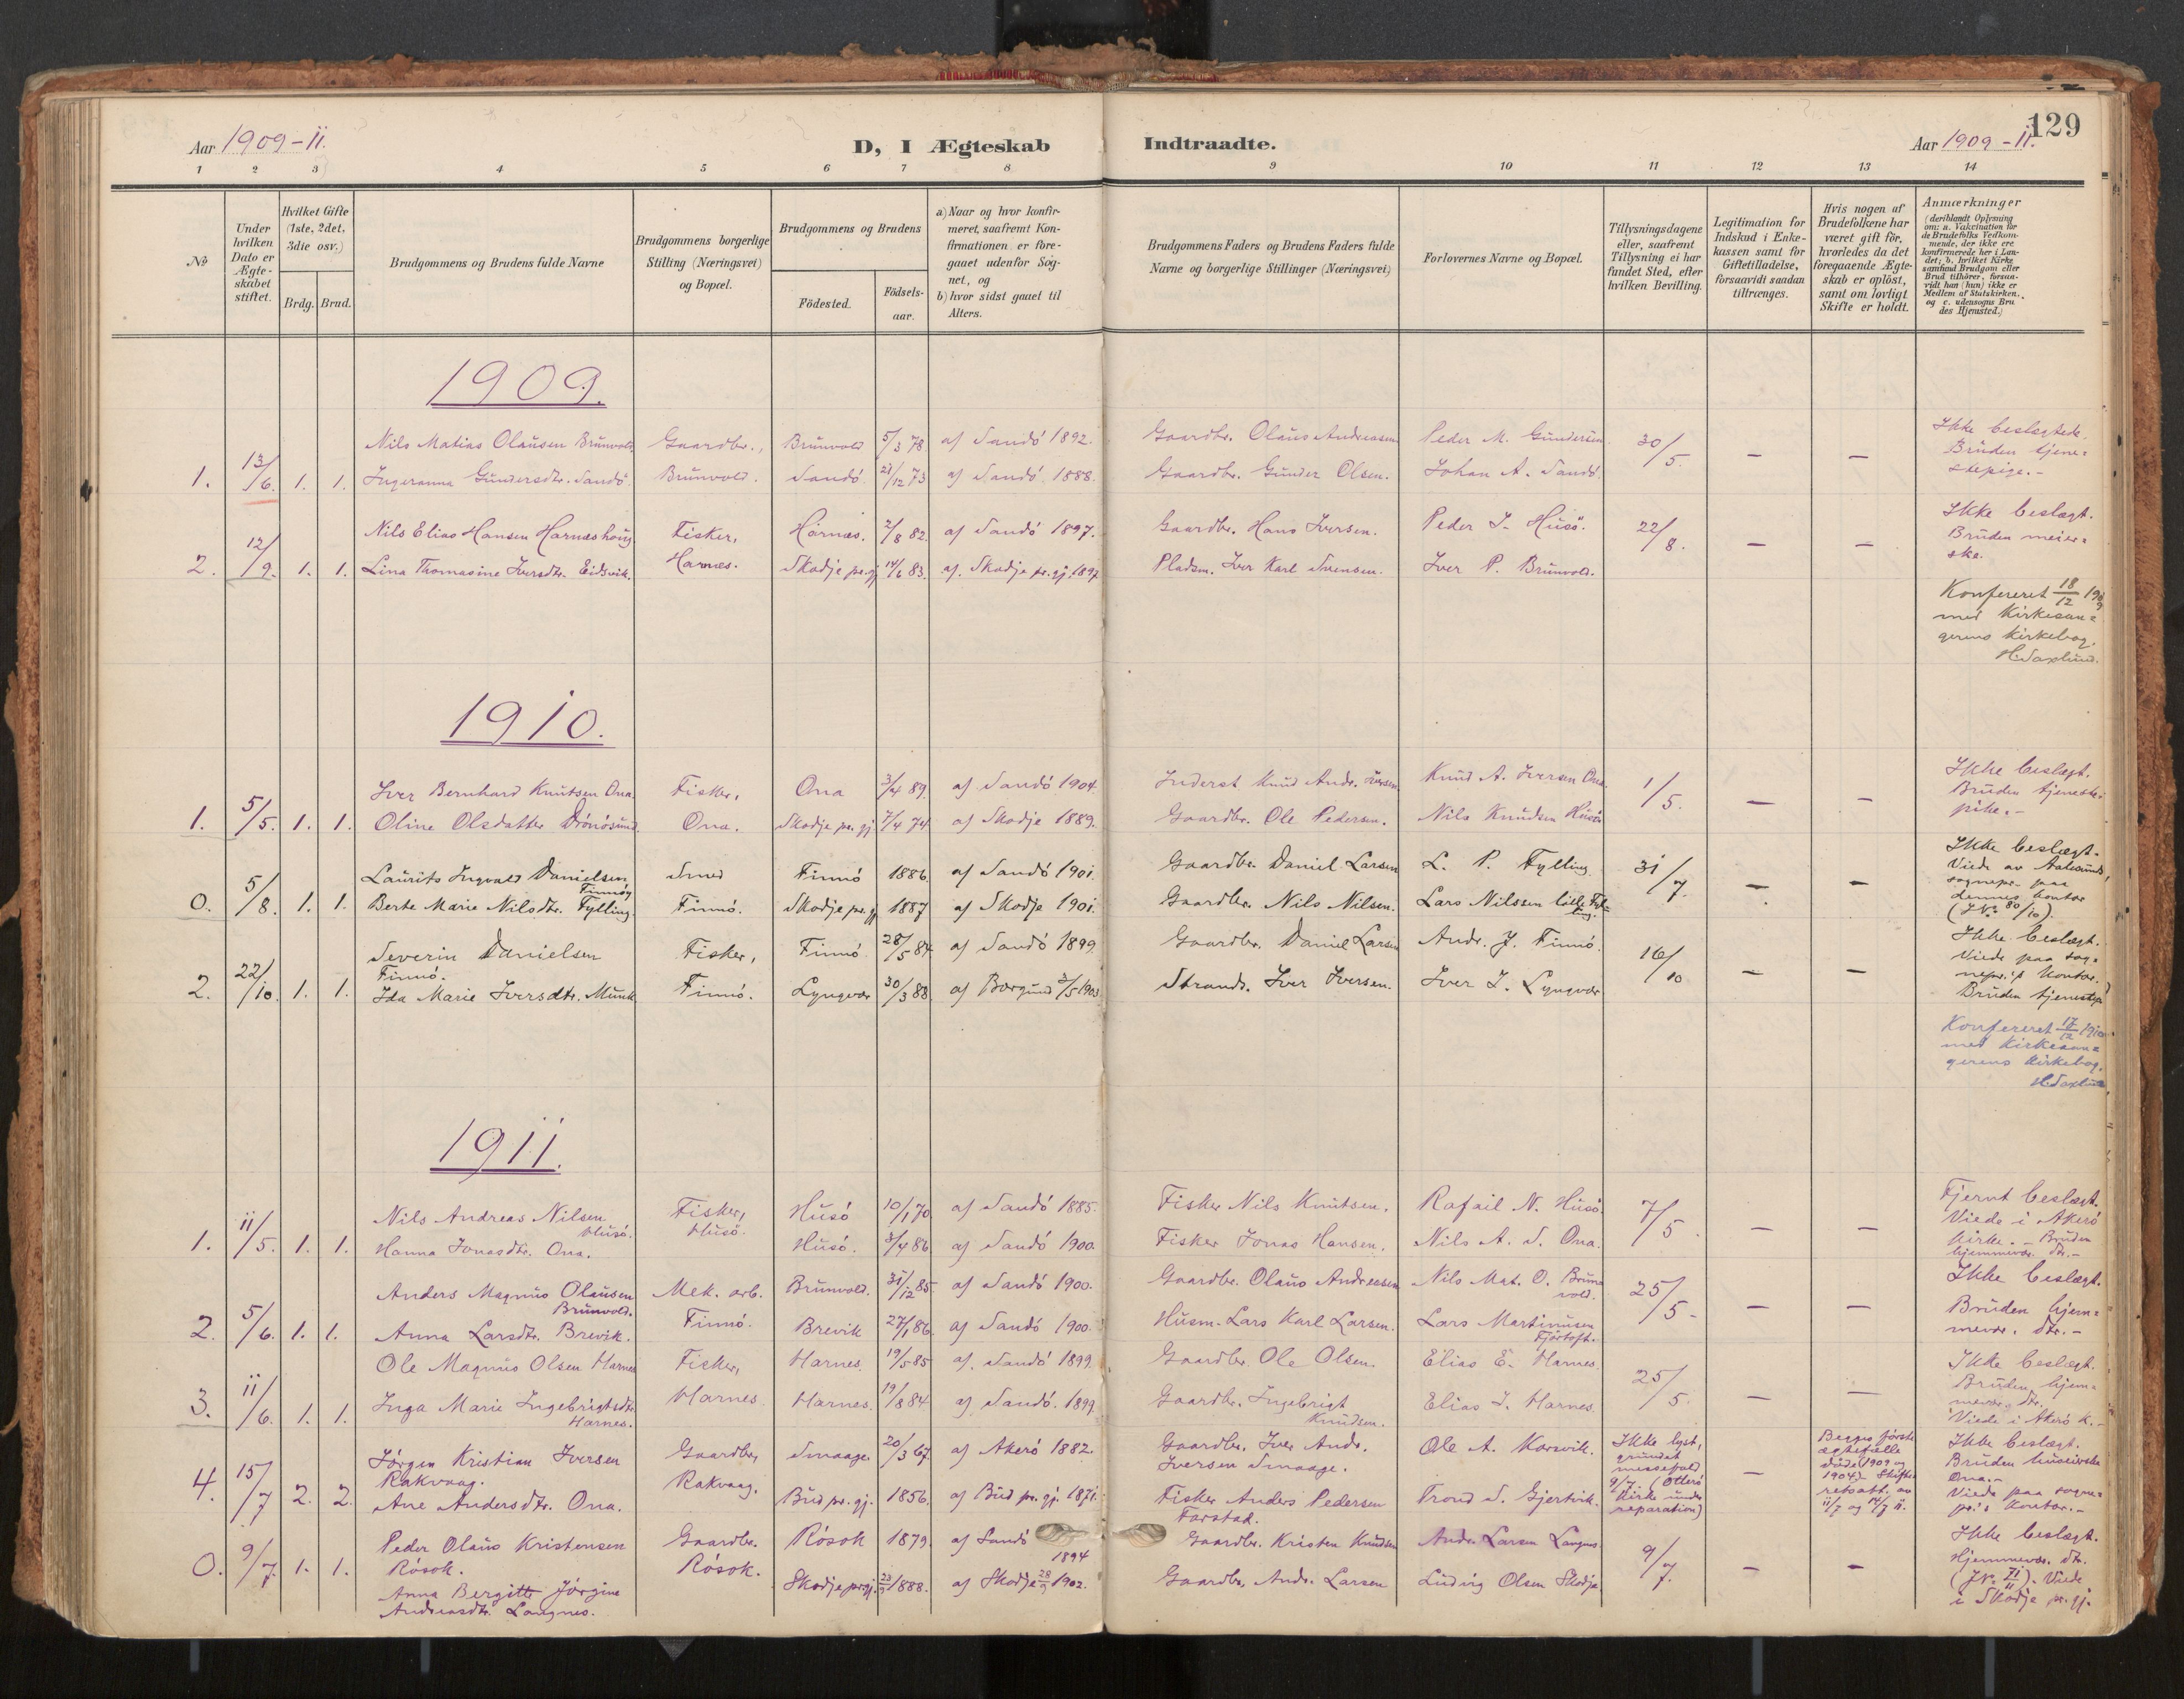 129
Aar 1909-11.
D, I Ægteskab Indtraadte.
Aar 1909-11.
1 2 3 4 5 6 7 8 9 10 11 12 13 14
No
Under hvilken Dato er Ægteskabet stiftet.
Hvilket Gifte (1ste, 2det, 3die osv.)
Brdg. Brud.
Brudgommens og Brudens fulde Navne
Brudgommens borgerlige Stilling (Næringsvei) og Bopæl.
Brudgommens og Brudens
Födested.
Födsels-aar.
a) Naar og hvor konfir-
meret, saafremt Kon-
firmationen er fore-
gaaet udenfor Sog-
net, og
b) hvor sidst gaaet til
Alters.
Brudgommens Faders og Brudens Faders fulde
Navne og borgerlige Stillinger (Næringsvei)
Forlovernes Navne og Bopæl.
Tillysningsdagene
eller, saafremt
Tillysning ei har
fundet Sted, efter
hvilken Bevilling.
Legitimation for
Indskud i Enke-
kassen samt for
Giftetilladelse,
forsaavidt saadan
tiltrænges.
Hvis nogen af
Brudefolkene har
været gift för,
hvorledes da det
foregaaende Ægte-
skab er oplöst,
samt om lovligt
Skifte er holdt.
Anmærkninger
(deriblandt Oplysning
om: a. Vakcination for
de Brudefolks Vedkom-
mende, der ikke ere
konfirmerede her i Lan-
det; b. hvilket Kirke
samfund Brudgom eller
Brud tilhörer, forsaa-
vidt han (hun) ikke er
Medlem af Statskirken,
og c. udensogns Bru
des Hjemsted.)
1909.
Nils Matias Olausen Brunvold. Gaardbr., Brunvold 5/3 78. af Sandö 1892. Gaardbr. Olaus Andreasen Peder M. Gundersen 30/5. Ikke beslegtede.
1. 13/6. 1. 1. Ingeranna Gundersdtr. Sandö Brunvold. Sandö 21/12 73 af Sandö 1888. Gaardbr. Gunder Olsen. Johan A. Sandö. — — Bruden tjene=
stepige.-
Nils Elias Hansen Harnæshaug Fisker, Harnæs. 2/8 82. af Sandö 1897. Gaardbr. Hans Iversen. Peder J. Husö. 22/8. Ikke beslægt.
2. 12/9. 1. 1. Lina Thomasine Iversdtr. Eidsvik. Harnæs. Skodje pr.gj. 14/6 83. af. Skodje pr.gj. 1897 Pladsm. Iver Karl Svensen. Iver P. Brunvold. — — Bruden meier=
ske.
Konfereret 18/12 1909
med Kirkesan=
gerens Kirkebog.
H. Saxlund.
1910.
Iver Bernhard Knutsen Ona. Fisker, Ona 3/4 89. af Sandö 1904. Inderst Knud Andr. Iversen Knud A. Iversen Ona 1/5. Ikke beslægt.
1. 5/5. 1. 1. Oline Olsdatter Drönösund. Ona. Skodje pr.gj. 7/4 74. af Skodje 1889. Gaardbr. Ole Pedersen. Nils Knudsen Husö. — — Bruden tjeneste=
pike.-
Laurits Ingvald Danielsen Finnöy Smed Finnö 1886. af Sandö 1901. Gaardbr. Daniel Larsen L. P. Fylling 31/7. Ikke beslægt.
0. 5/8. 1. 1. Berte Marie Nilsdtr. Fylling. Finnö. Skodje pr.gj. 1887 af Skodje 1901. Gaardbr. Nils Nilsen. Lars Nilssen lille Fylling. — — Viede av Aalesunds
sognepr. paa
dennes kontor
(J.No 80/10).
Severin Danielsen Finnö. Fisker, Finnö 28/5 84. af Sandö 1899. Gaardbr. Daniel Larsen Andr. J. Finnö. 16/10 Ikke beslægt.
2. 22/10. 1. 1. Ida Marie Iversdtr. Munk Finnö. Lyngvær 30/3 88. af Borgund 3/5 1903 Strands. Iver Iversen. Iver I. Lyngvær — — Viede paa sog=
nepr.'s kontor.
Bruden tjenestep
Konfereret 17/12 1910
med Kirkesan=
gerens Kirkebog.
H. Saxlund
1911.
Nils Andreas Nilsen Husö. Fisker, Husö 10/1 70. af Sandö 1885. Fisker Nils Knutsen. Rafail N. Husö. 7/5. Fjernt beslægt.
1. 11/5. 1. 1. Hanna Jonasdtr. Ona. Husö. Husö. 3/4 86 af Sandö 1900. Fisker Jonas Hansen. Nils A. S. Ona. — — Viede i Akerö
kirke. - Bruden
hjemmevær. dtr.-
Anders Magnus Olausen Brunvold. Mek. arb. Brunvold. 31/12 85. af Sandö 1900. Gaardbr. Olaus Andreasen Nils Mat. O. Brunvold. 25/5. Ikke beslægt.
2. 5/6. 1. 1. Anna Larsdtr. Brevik. Finnö. Brevik 27/1 86. af Sandö 1900. Husm. Lars Karl Larsen. Lars Martinusen Fjörtoft. — — Bruden hjem=
mevær. dtr.-
Ole Magnus Olsen Harnes Fisker, Harnes. 19/5 85 af. Sandö 1899. Gaardbr. Ole Olsen. Elias E. Harnes. 25/5. Ikke beslægt.
3. 11/6. 1. 1. Inga Marie Ingebrigtsdtr. Harnes. Harnes Harnes. 19/8 84 af Sandö. 1899. Gaardbr. Ingebrigt Knudsen. Elias I. Harnes. — — Bruden hjem=
mevær. dtr.
Viede i Akerö K.-
Jörgen Kristian Iversen Rakvaag. Gaardbr, Smaage. 20/3 67. af Akerö 1882. Gaardbr. Iver Andr. Iversen Smaage. Ole A. Korsvik. Ikke lyst, grundet messefald 9/7 (Otterö Kirke under reparation) — Begges förste ægtefælle döde (1909 og 1904). Skifte= retsatt. av 11/7 og 14/7 11. Ikke beslægt.
4. 15/7 2. 2. Ane Andersdtr. Ona. Rakvaag. Bud pr.gj. 1856. af Bud pr.gj. 1871. Fisker Anders Pedersen Farstad. Trond S. Gjertvik. Bruden husvirske
Ona.-
Viede paa sogne=
pr.'s kontor.-
Peder Olaus Kristensen Rösok. Gaardbr. Rösok 1879. af Sandö 1894 Gaardbr. Kristen Knudsen Andr. Larsen Langnes 9/7. Ikke beslægt.
0. 9/7. 1. 1. Anna Bergitte Jörgine Andreasdtr. Langnes. Rösok. Skodje pr.gj. 1888. af Skodje 28/9 1902. Gaardbr. Andr. Larsen Ludvig Olsen Skodje — — Hjemmevær. dtr.
(J.No 71/11). Viede
i Skodje pr.gj.